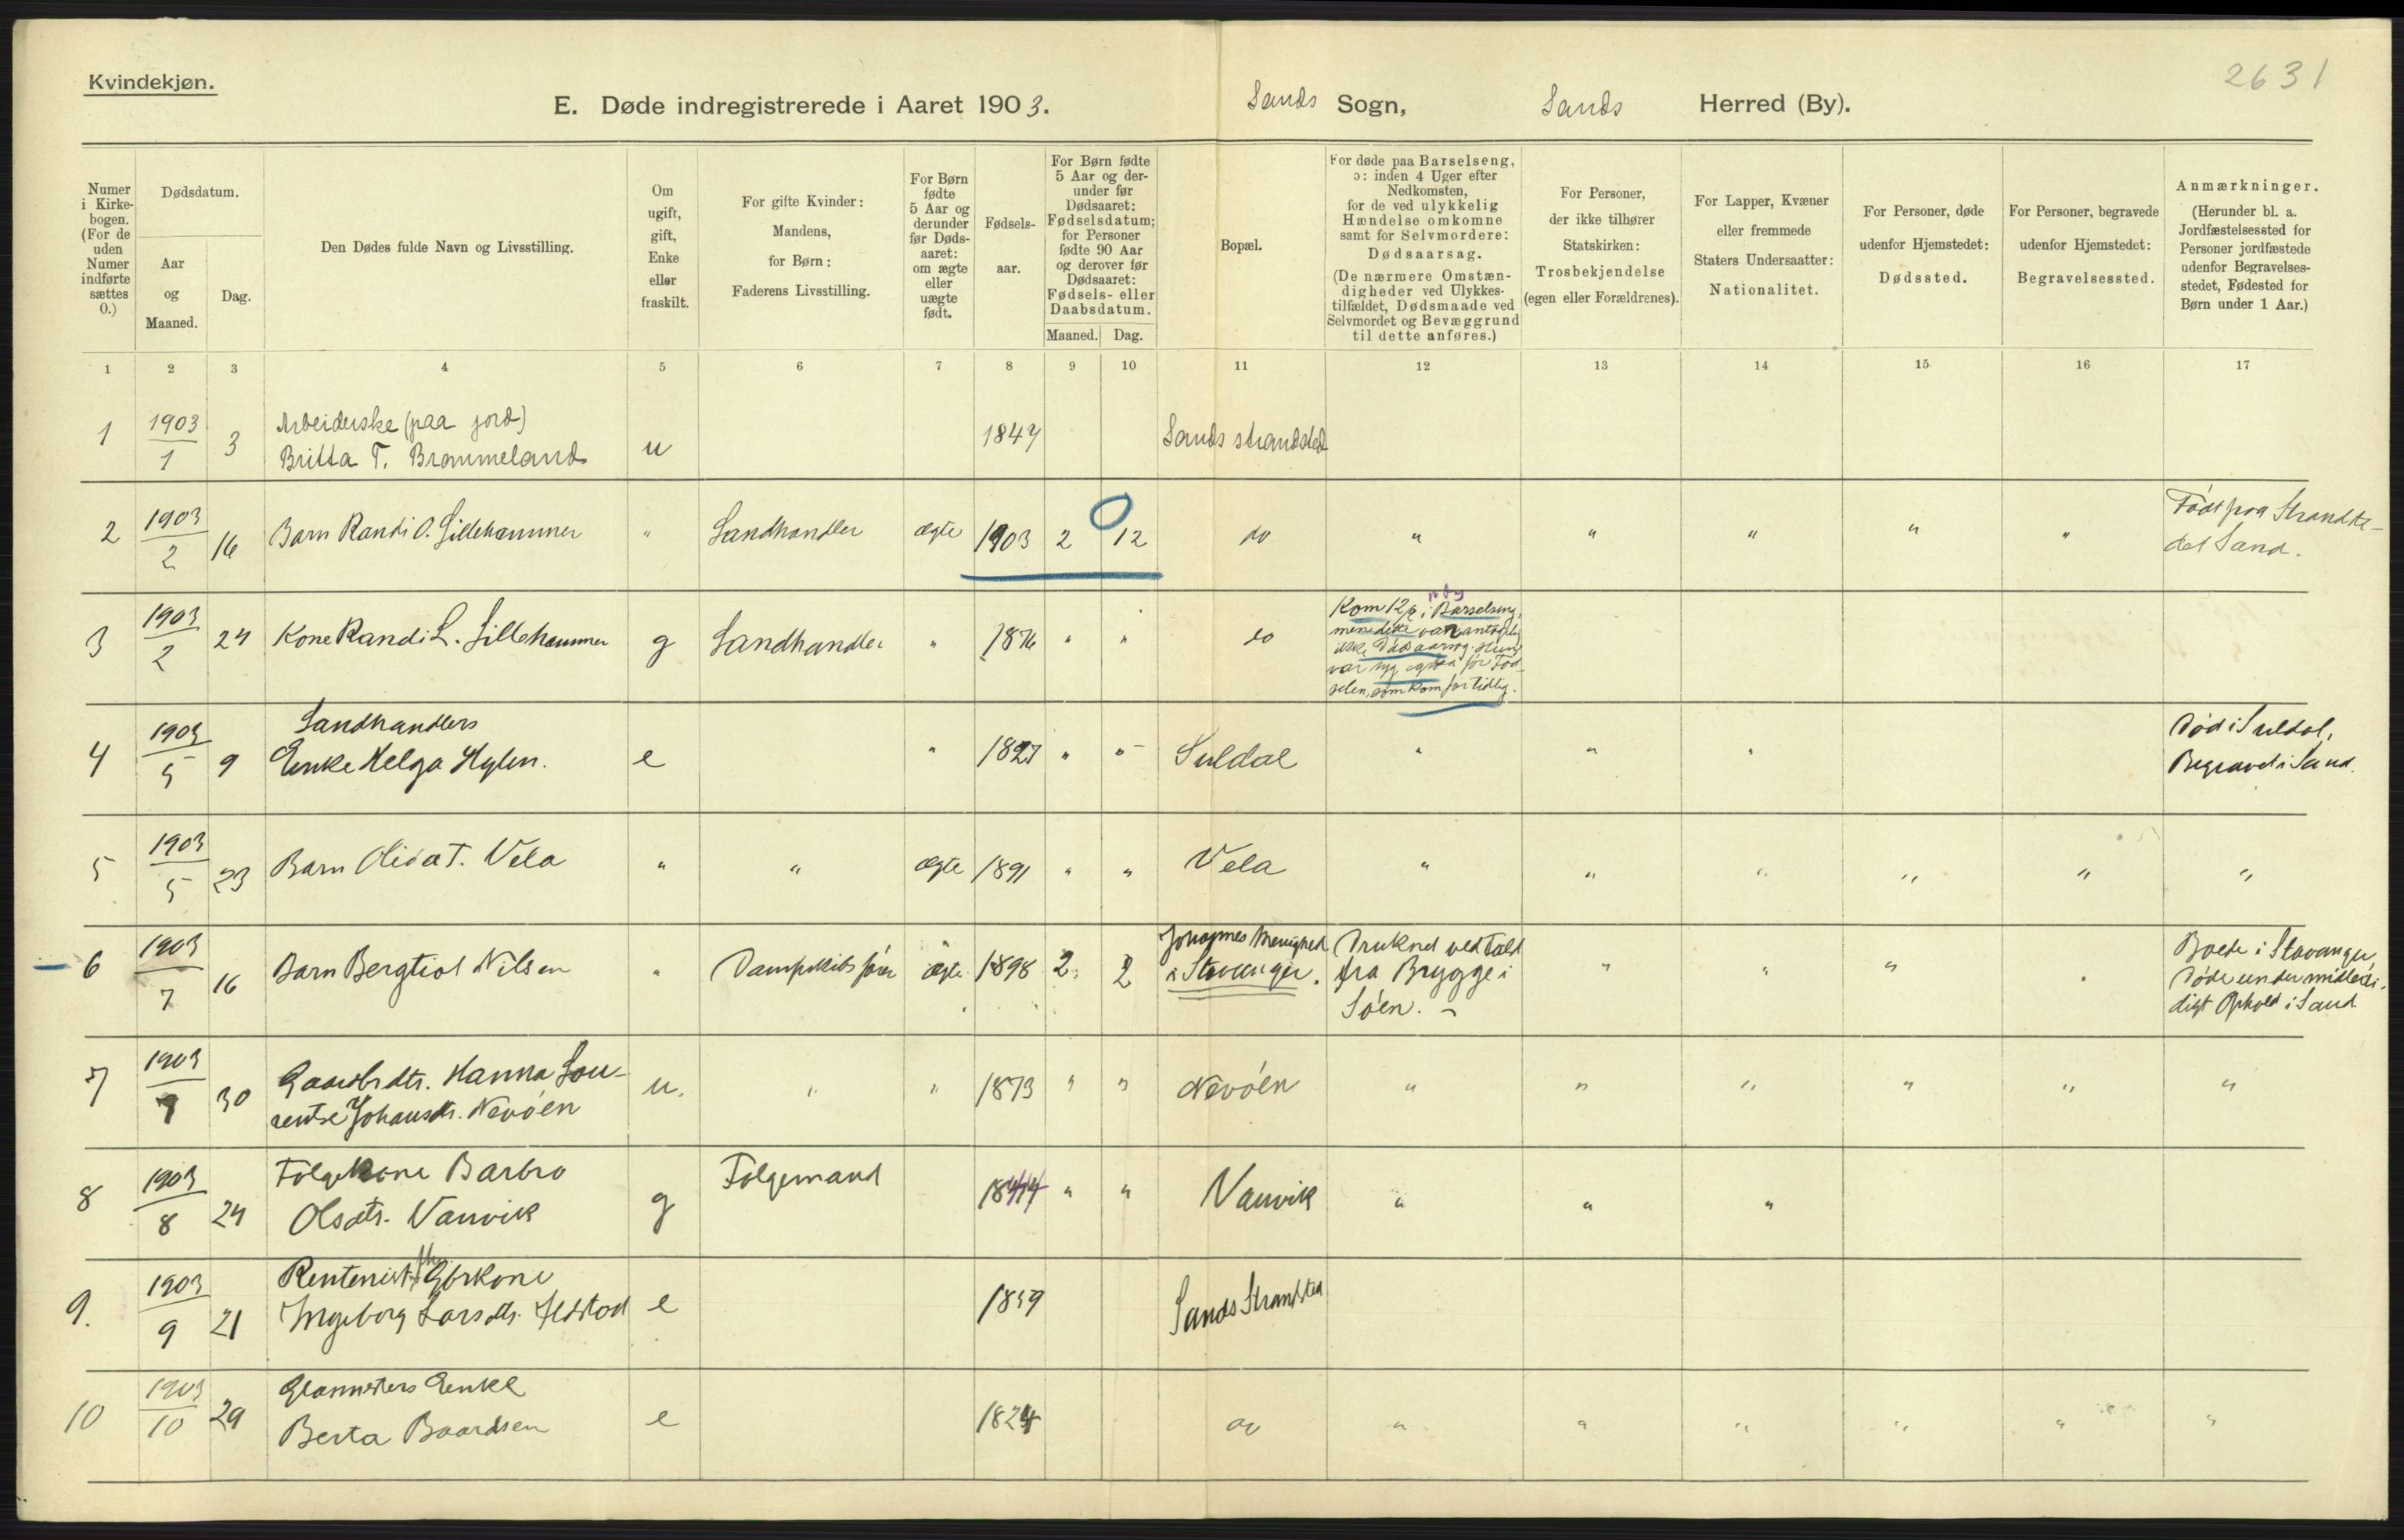 Kvindekjøn.
2631
E. Døde indregistrerede i Aaret 1903. Sands Sogn, Sands Herred (By).
Numer i Kirkebogen. (For de uden Numer indførte sættes 0.)
Dødsdatum.
Aar og Maaned.
Dag.
Den Dødes fulde Navn og Livsstilling.
Om ugift, gift, Enke eller fraskilt.
For gifte Kvinder: Mandens, for Børn: Faderens Livsstilling.
For Børn fødte 5 Aar og derunder før Dødsaaret: om ægte eller uægte født.
Fødselsaar.
For Børn fødte 5 Aar og derunder før Dødsaaret: Fødselsdatum; for Personer fødte 90 Aar og derover før Dødsaaret: Fødsels- eller Daabsdatum.
Maaned. Dag.
Bopæl.
For døde paa Barselseng, ɔ: inden 4 Uger efter Nedkomsten, for de ved ulykkelig Hændelse omkomne samt for Selvmordere: Dødsaarsag. (De nærmere Omstændigheder ved Ulykkestilfældet, Dødsmaade ved Selvmordet og Bevæggrund til dette anføres.)
For Personer, der ikke tilhører Statskirken: Trosbekjendelse (egen eller Forældrenes).
For Lapper, Kvæner eller fremmede Staters Undersaatter: Nationalitet.
For Personer, døde udenfor Hjemstedet: Dødssted.
For Personer, begravede udenfor Hjemstedet: Begravelsessted.
Anmærkninger. (Herunder bl. a. Jordfæstelsessted for Personer jordfæstede udenfor Begravelsesstedet, Fødested for Børn under 1 Aar.)
1 2 3 4 5 6 7 8 9 10 11 12 13 14 15 16 17
1 1903/1 3 Arbeiderske (paa jord)
Britta T. Brommeland u 1847 Sands strandsted
2 1903/2 16 Barn Randi O. Lillehammer " Landhandler ægte 1903 2 12 do " " " " " Født paa Strandste-
det Sand.
3 1903/2 24 Kone Randi L. Lillehammer g Landhandler " 1876 " " do
Kom 12/2 i Barselseng,
men dette var antagelig
ikke Dødsaarsag. Hun
var syg ogsaa før Fød-
selen, som kom for tidlig.
4 1903/5 9 Landhandlers
Enke Helga Hylen. e " 1827 " " Suldal " " " Død i Suldal,
Begravet i Sand.
5 1903/5 23 Barn Olida T. Vela " " ægte 1891 " " Vela " " " " " "
6 1903/7 16 Barn Bergtiot Nilsen " Dampskibsfører ægte 1898 2 2 Johannes Menighed
i Stavanger.
Druknet ved Fald
fra Brygge i
Søen. " " " " Boede i Stavanger,
Døde under midlerti-
digt Ophold i Sand
7 1903/7 30 Gaardbrdtr. Hanna Lou-
rentse Johansdtr. Nevøen u. " " 1873 " " Nevøen " " " " " "
8 1903/8 24 Følgekone Barbro
Olsdtr. Vanvik g Følgemand 1844 " " Vanvik " " "
9. 1903/9 21 Rentenist, Gbrkone
Ingeborg Larsdtr. e 1839 Sands Strandsted
10 1903/10 29 Enke
Berta Baardsen e 1824 do " " " " " "